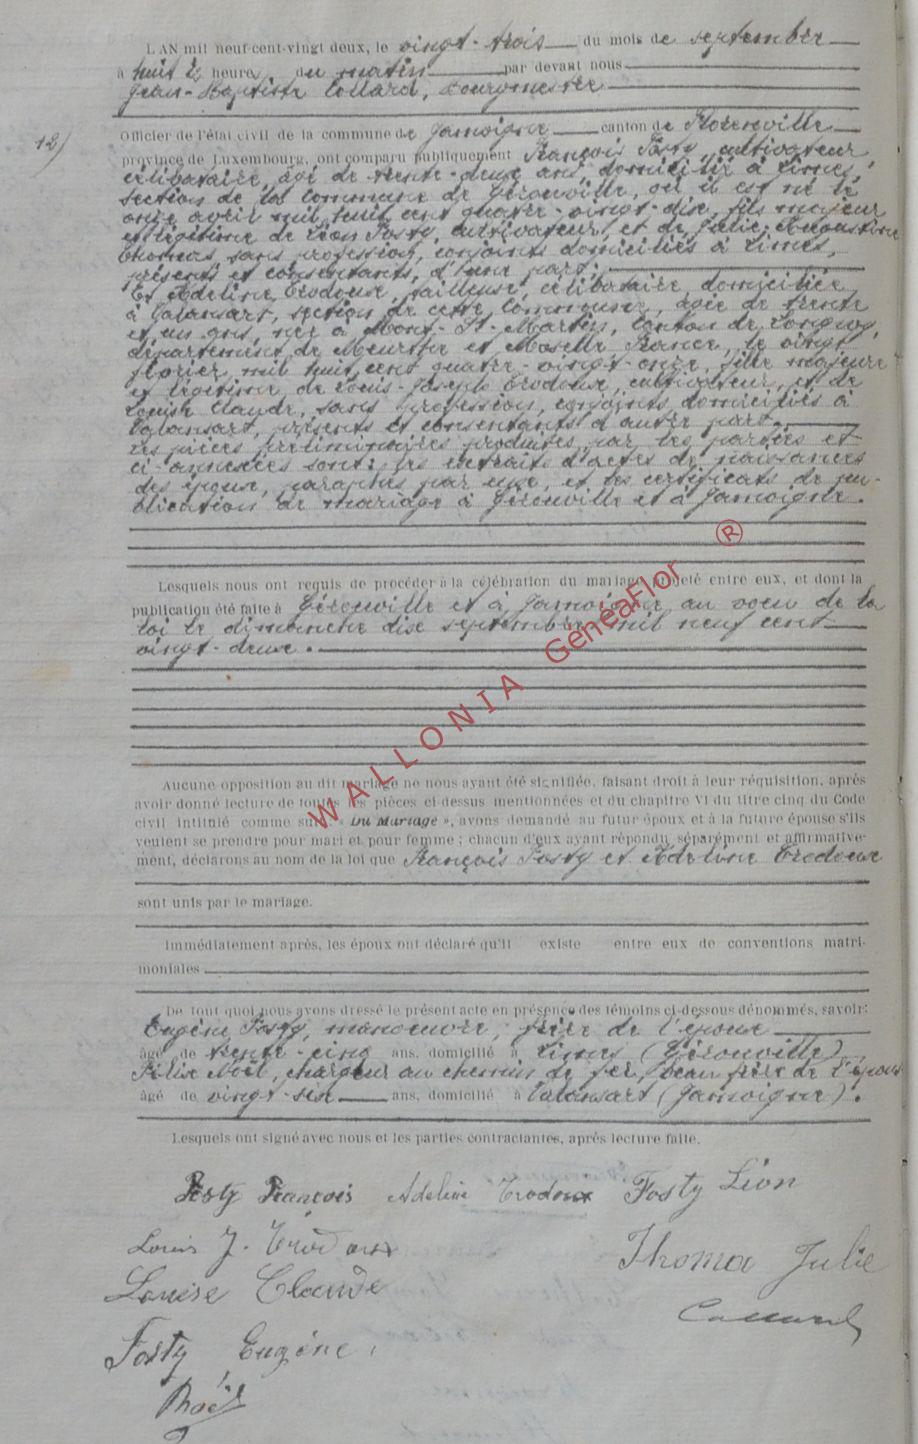 L'AN mil neuf-cent-vingt deux, le vingt-trois du mois de septembre
à huit ½ heures du matin par devant nous
Jean-Baptiste Collard, Bourgmestre
12)
Officier de l'état civil de la commune de Jamoigne canton de Florenville
province de Luxembourg, ont comparu publiquement François Fosty, cultivateur
célibataire, âgé de trente-deux ans domicilié à Limes,
section de la commune de Gérouville, où il est né le
onze avril mil huit cent quatre-vingt-dix, fils majeur
et légitime de Léon Fosty, cultivateur, et de Julie-Augustine
Thomas, sans profession, conjoints domiciliés à Limes,
présents et consentants, d'une part;
Et Adeline Trodoux, tailleuse, célibataire, domiciliée
à Valansart, section de cette commune, âgée de trente
et un ans, née à Mont-St-Martin, Canton de Longwy,
département de Meurthe et Moselle France, le vingt
février mil huit cent quatre-vingt-onze, fille majeure
et légitime de Louis-Joseph Trodoux, cultivateur, et de
Louise Claude, sans profession, conjoints domiciliés à
Valansart, présents et consentants d'autre part.
Les pièces préliminaires produites par les parties et
ci-annexées sont: les extraits d'actes de naissances
des époux, paraphés par eux, et les certificats de pu-
blication de mariage à Gérouville et à Jamoigne.
Lesquels nous ont requis de procéder à la célébration du mariage projeté entre eux, et dont la
publication été faite à Gérouville et à Jamoigne au voeu de la
loi le dimanche dix septembre mil neuf cent
vingt-deux.
WALLONIA GeneaFlor ®
Aucune opposition au dit mariage ne nous ayant été signifiée, faisant droit à leur réquisition, après
avoir donné lecture de toutes les pièces ci-dessus mentionnées et du chapitre VI du titre cinq du Code
civil intitulé comme suit « Du Mariage », avons demandé au futur époux et à la future épouse s'ils
veulent se prendre pour mari et pour femme ; chacun d'eux ayant répondu séparément et affirmative-
ment, déclarons au nom de la loi que François Fosty et Adeline Trodoux
sont unis par le mariage.
Immédiatement après, les époux ont déclaré qu'il existe entre eux de conventions matri-
moniales
De tout quoi nous avons dressé le présent acte en présence des témoins ci-dessous dénommés, savoir:
Eugène Fosty, manoeuvre, frère de l'époux
âgé de trente-cinq ans, domicilié à Limes (Gérouville)
Félix Noël, chargeur au chemin de fer, beau frère de l'époux
âgé de vingt-six ans, domicilié à Valansart (Jamoigne).
Lesquels ont signé avec nous et les parties contractantes, après lecture faite.
Fosty François Adeline Trodoux Fosty Léon
Louis J. Trodoux Thoma Julie
Louise Claude
Collard
Fosty Eugène.
Noël